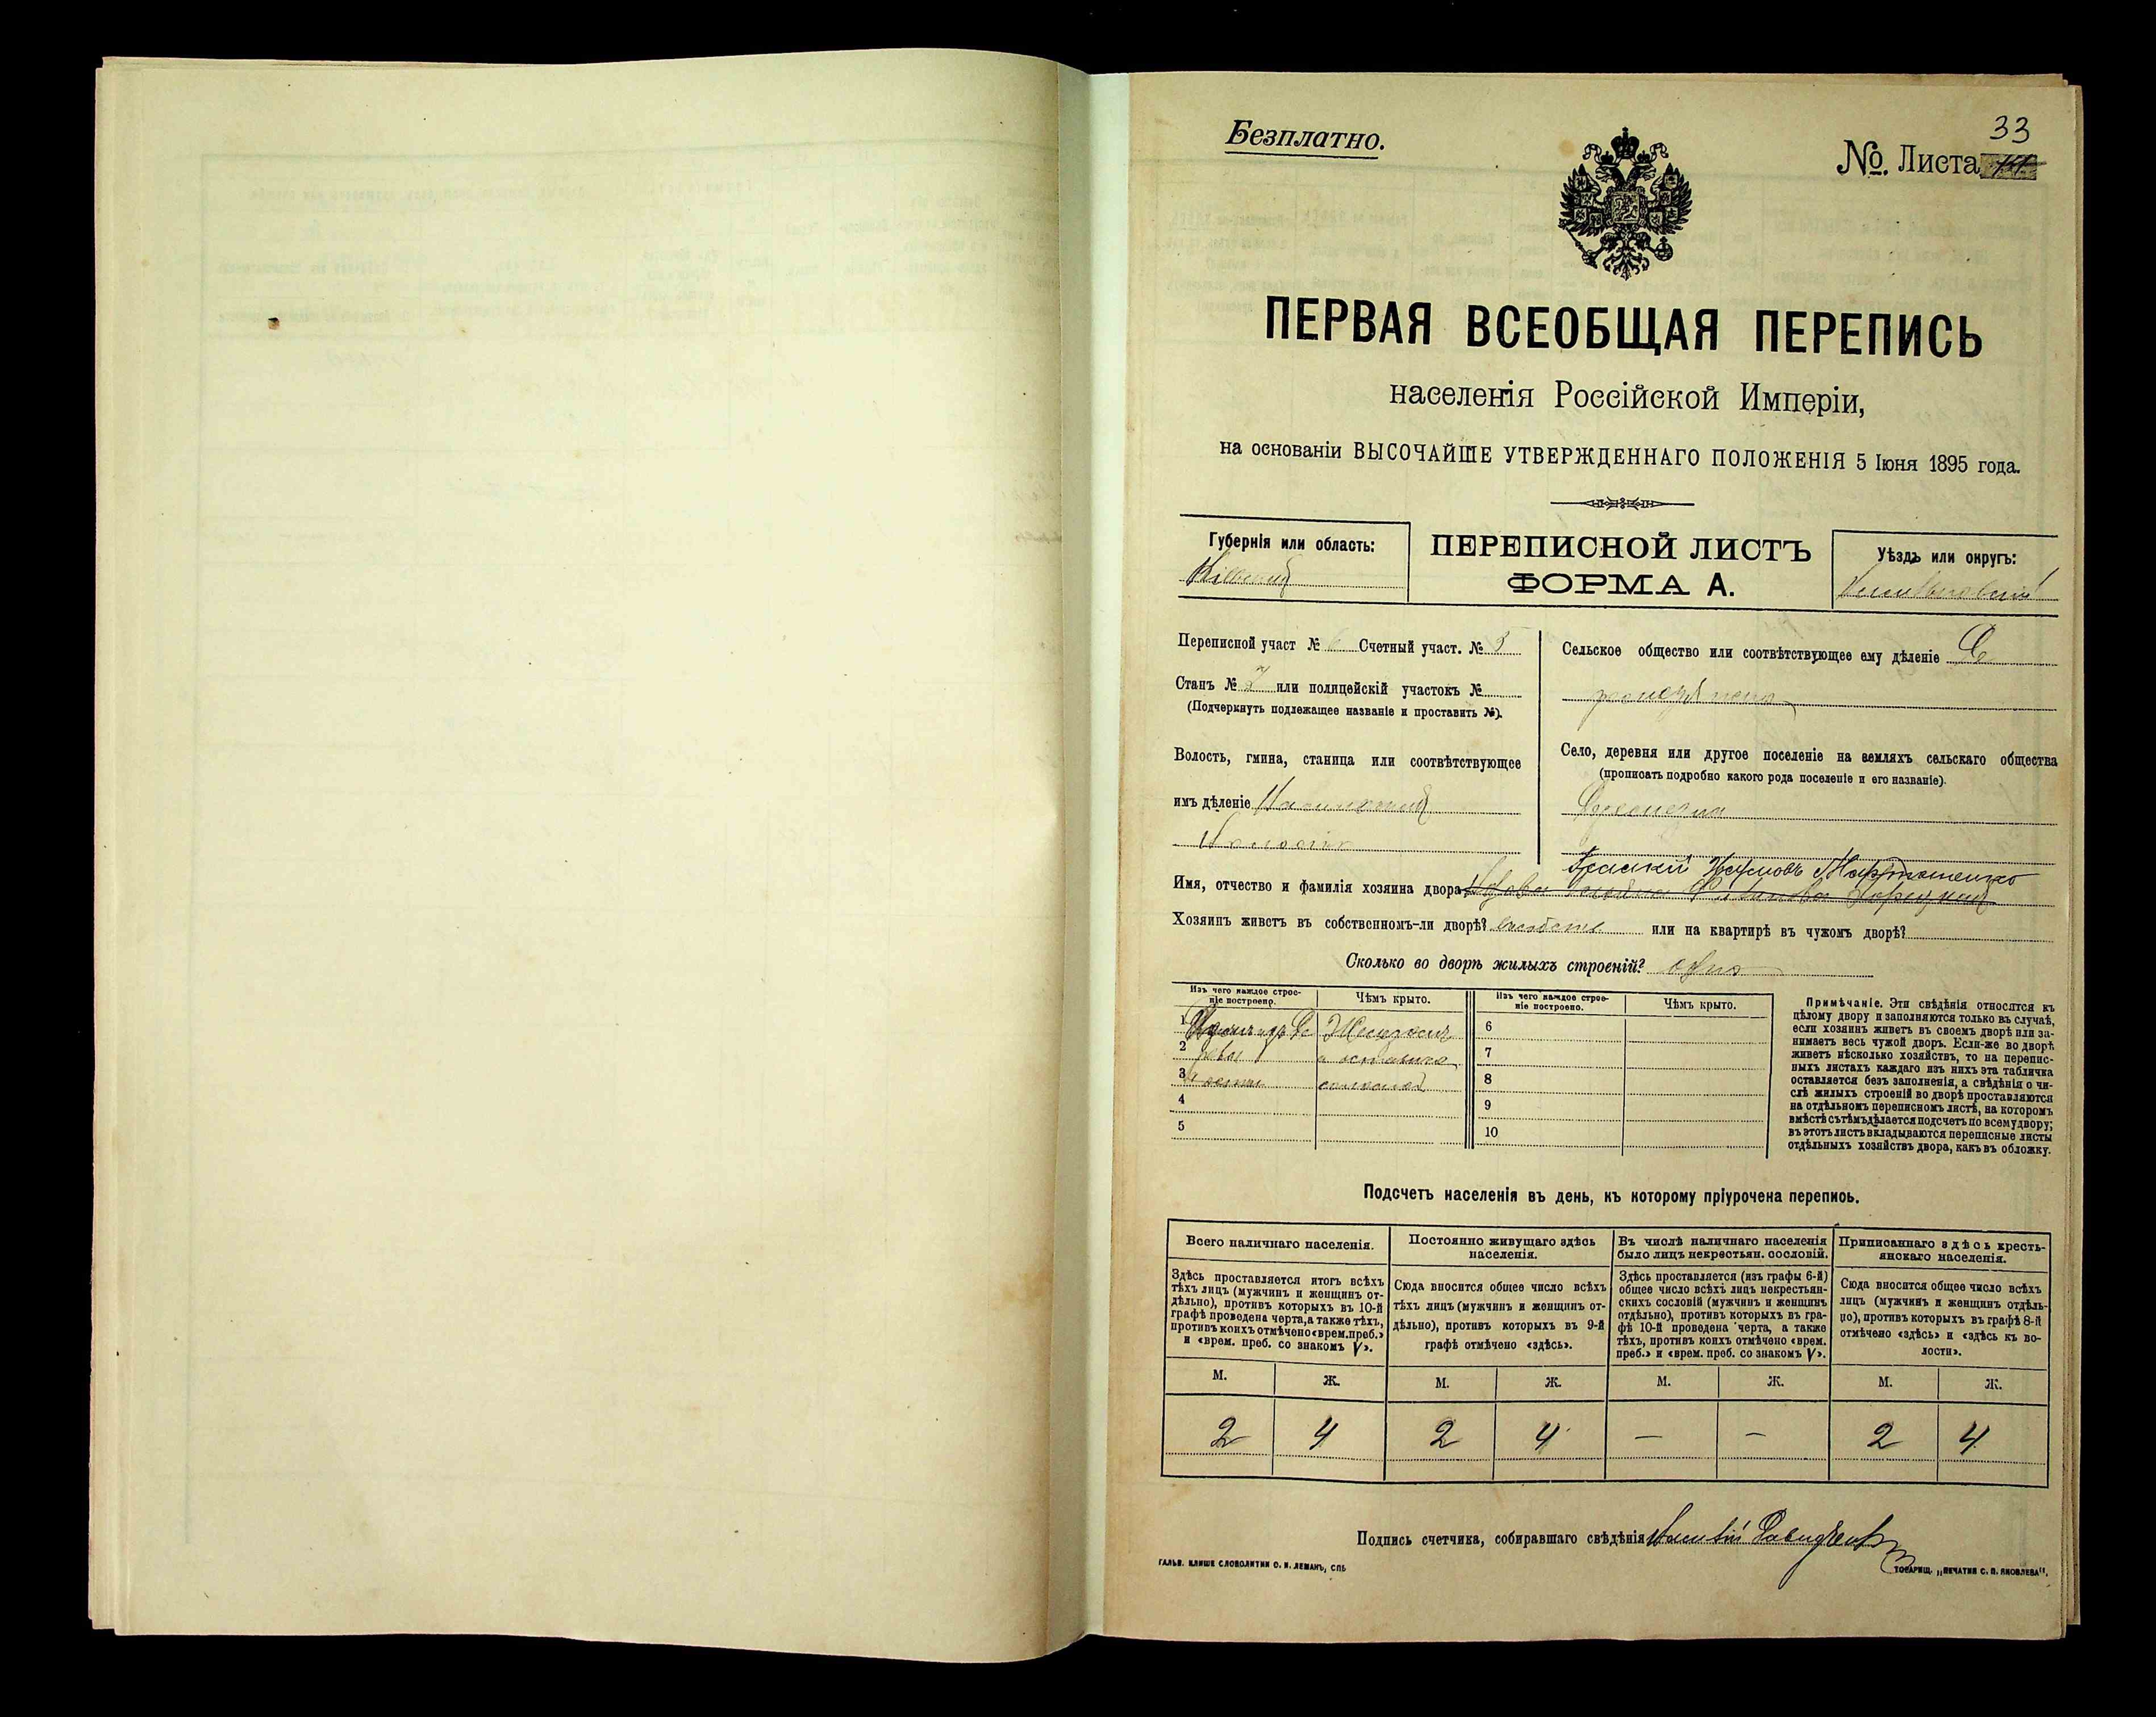 Безплатно.
33
№. Листа
ПЕРВАЯ ВСЕОБЩАЯ ПЕРЕПИСЬ
населенія Россійской Имперіи,
на основаніи ВЫСОЧАЙШЕ УТВЕРЖДЕННАГО ПОЛОЖЕНІЯ 5 Іюня 1895 года.
Губернія или область:
ПЕРЕПИСНОЙ ЛИСТЪ
ФОРМА А.
Уѣздъ или округъ:
Переписной участ № 6 Счетный участ. № 5
Станъ № 2 или полицейскій участокъ №
(Подчеркнуть подлежащее названіе и проставить №).
Волость, гмина, станица или соотвѣтствующее
имъ дѣленіе
Сельское общество или соотвѣтствующее ему дѣленіе
Село, деревня или другое поселеніе на земляхъ сельскаго общества
(прописать подробно какого рода поселеніе и его названіе).
Имя, отчество и фамилія хозяина двора
Хозяинъ живетъ въ собственномъ-ли дворѣ? или на квартирѣ въ чужомъ дворѣ?
Сколько во дворѣ жилыхъ строеній? одно
Изъ чего каждое строе-
ніе построено.
Чѣмъ крыто.
1
2
3
4
5
Изъ чего каждое строе-
ніе построено.
Чѣмъ крыто.
6
7
8
9
10
Примѣчаніе. Эти свѣдѣнія относятся къ
цѣлому двору и заполняются только въ случаѣ,
если хозяинъ живетъ въ своемъ дворѣ или за-
нимаетъ весь чужой дворъ. Если-же во дворѣ
живетъ нѣсколько хозяйствъ, то на перепис-
ныхъ листахъ каждаго изъ нихъ эта табличка
оставляется безъ заполненія, а свѣдѣнія о чи-
слѣ жилыхъ строеній во дворѣ проставляются
на отдѣльномъ переписномъ листѣ, на которомъ
вмѣстѣ съ тѣмъ дѣлается подсчетъ по всему двору;
въ этотъ листъ вкладываются переписные листы
отдѣльныхъ хозяйствъ двора, какъ въ обложку.
Подсчетъ населенія въ день, къ которому пріурочена перепись.
Всего наличнаго населенія.
Здѣсь проставляется итогъ всѣхъ
тѣхъ лицъ (мужчинъ и женщинъ от-
дѣльно), противъ которыхъ въ 10-й
графѣ проведена черта, а также тѣхъ,
противъ коихъ отмѣчено «врем. преб.»
и «врем. преб. со знакомъ V».
Постоянно живущаго здѣсь
населенія.
Сюда вносится общее число всѣхъ
тѣхъ лицъ (мужчинъ и женщинъ от-
дѣльно), противъ которыхъ въ 9-й
графѣ отмѣчено «здѣсь».
Въ числѣ наличнаго населенія
было лицъ некрестьян. сословій.
Здѣсь проставляется (изъ графы 6-й)
общее число всѣхъ лицъ некрестьян-
скихъ сословій (мужчинъ и женщинъ
отдѣльно), противъ которыхъ въ гра-
фѣ 10-й проведена черта, а также
тѣхъ, противъ коихъ отмѣчено «врем.
преб.» и «врем. преб. со знакомъ V».
Приписаннаго здѣсь кресть-
янскаго населенія.
Сюда вносится общее число всѣхъ
лицъ (мужчинъ и женщинъ отдѣль-
но), противъ которыхъ въ графѣ 8-й
отмѣчено «здѣсь» и «здѣсь къ во-
лости».
М. Ж. М. Ж. М. Ж. М. Ж.
2 4 2 4 — — 2 4
Подпись счетчика, собиравшаго свѣдѣнія
ГАЛЬВ. КЛИШЕ СЛОВОЛИТНИ О. И. ЛЕМАНЪ, СПБ
ТОВАРИЩ. „ПЕЧАТНЯ С. П. ЯКОВЛЕВА".